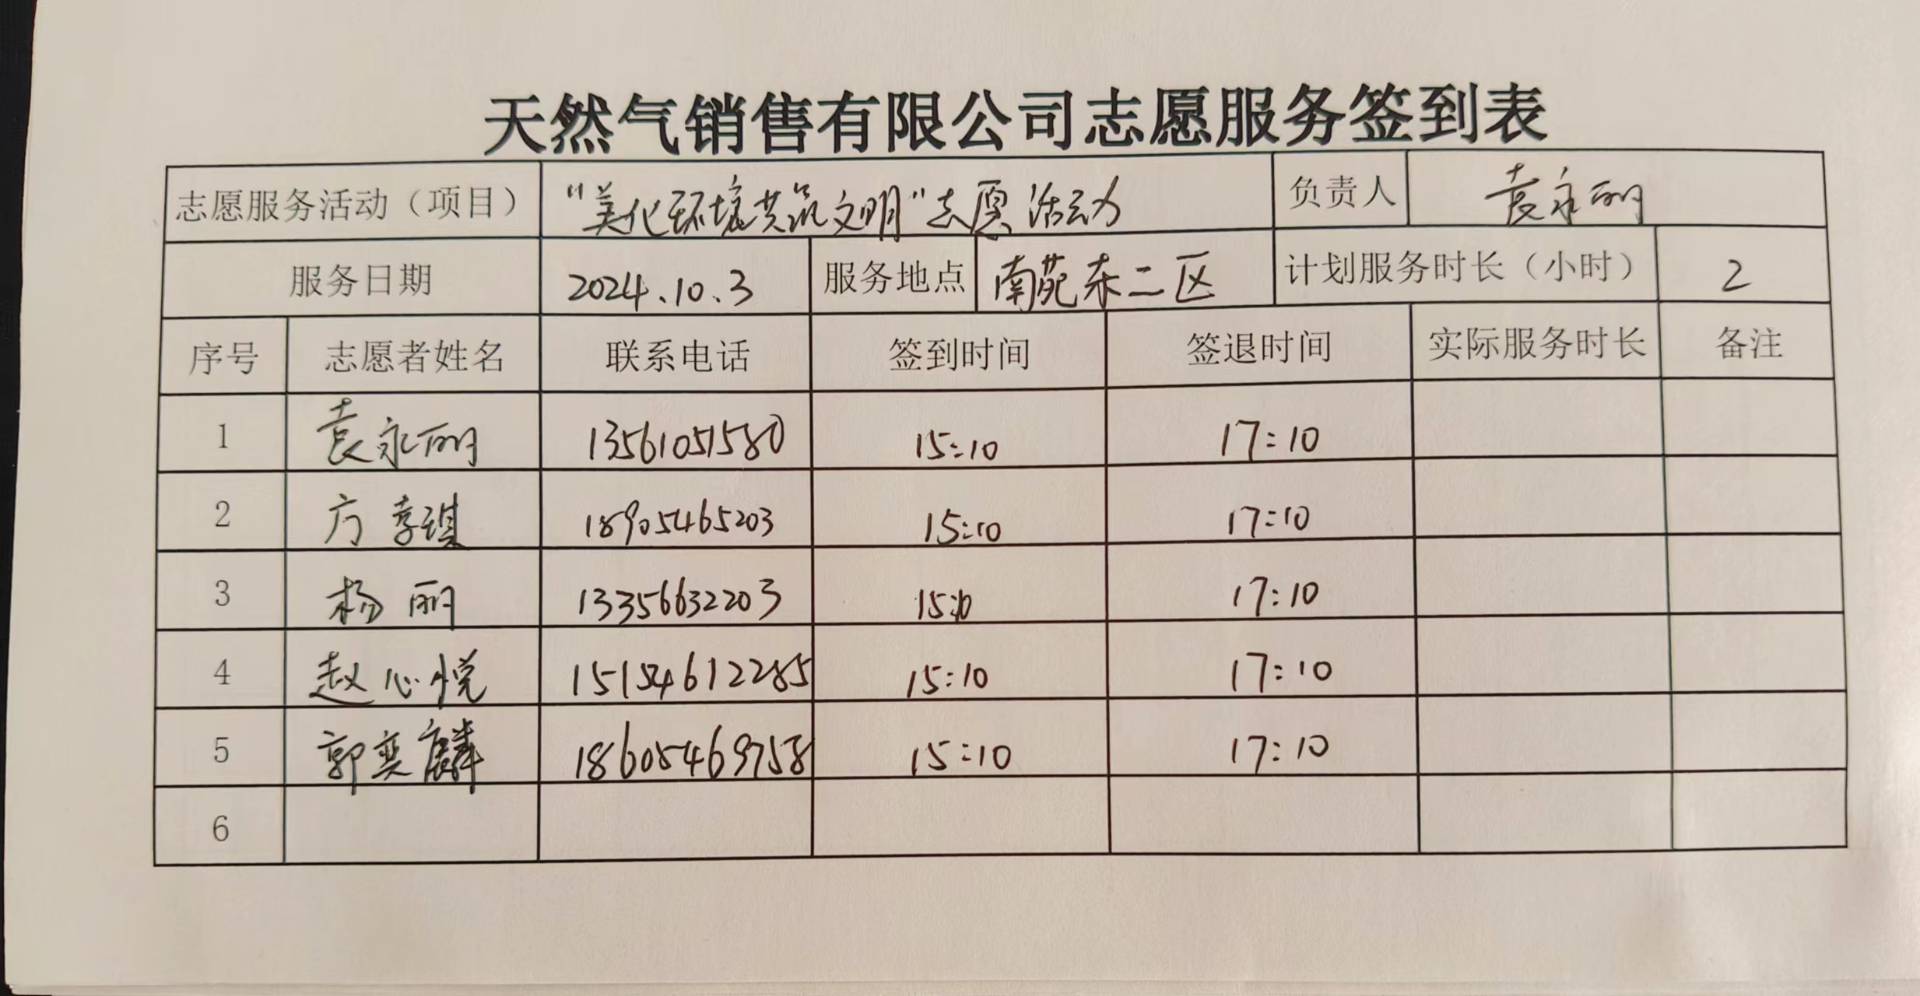 天然气销售有限公司志愿服务签到表
志愿服务活动（项目） “美化环境共筑文明”志愿活动 负责人 袁永丽
服务日期 2024.10.3 服务地点 南苑东二区 计划服务时长（小时） 2
序号 志愿者姓名 联系电话 签到时间 签退时间 实际服务时长 备注
1 袁永丽 13561051580 15:10 17:10
2 方孝琪 18905465203 15:10 17:10
3 杨丽 13356632203 15:10 17:10
4 赵心悦 15154612285 15:10 17:10
5 郭奕麟 18605469758 15:10 17:10
6